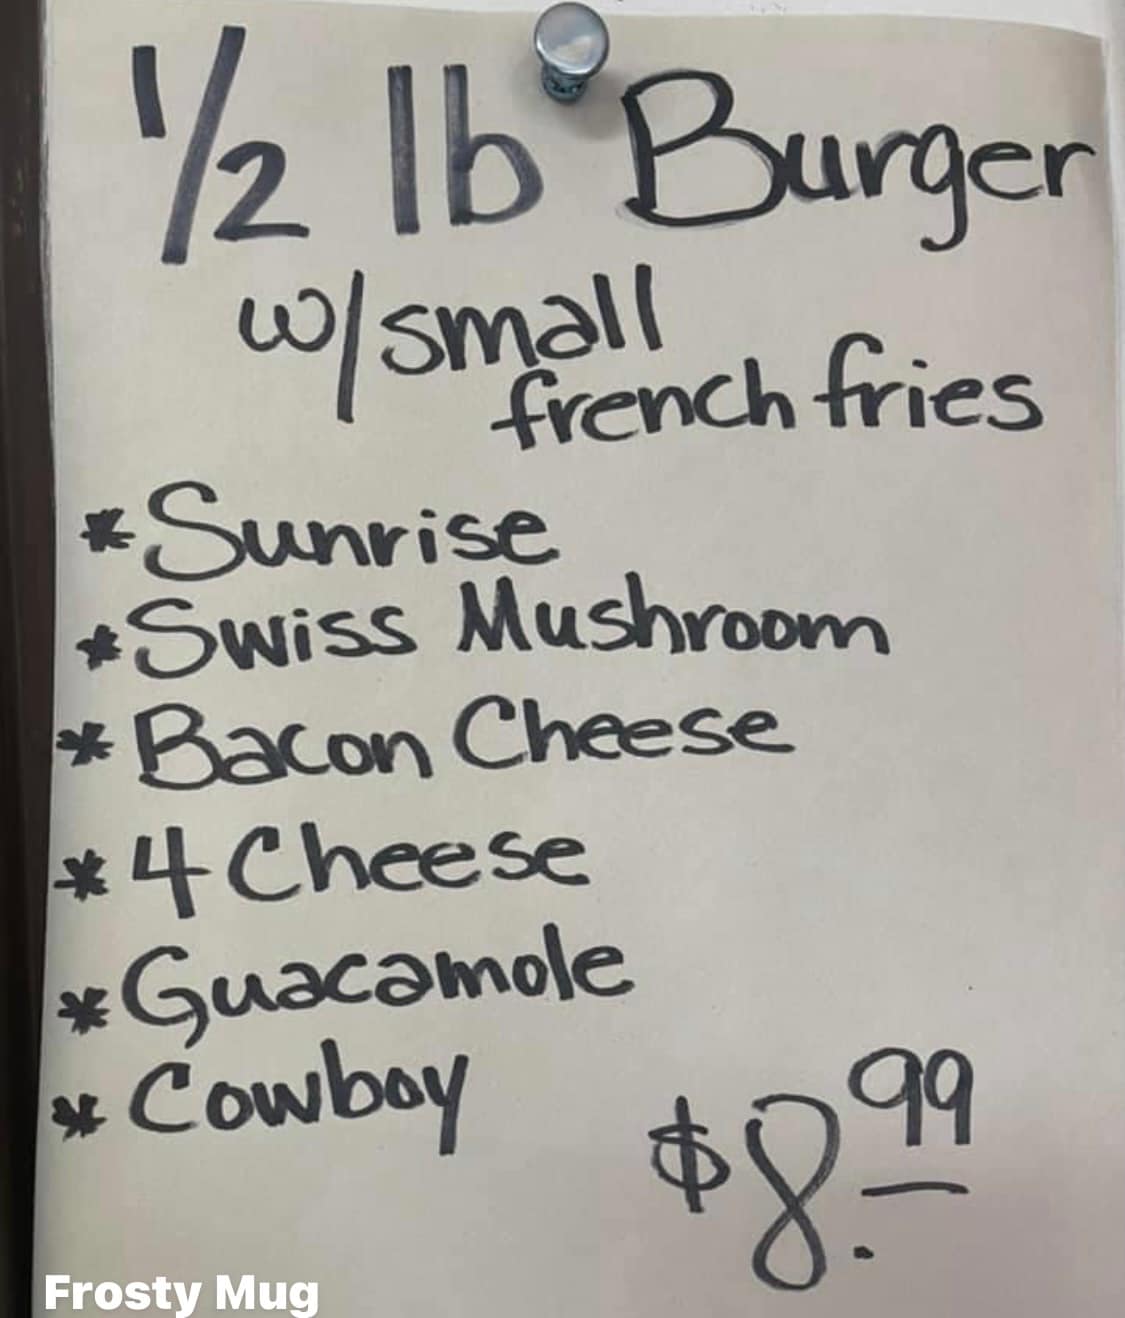 1/2 lb Burger
w/small
french fries
* Sunrise
* Swiss Mushroom
* Bacon Cheese
* 4 Cheese
* Guacamole
* Cowboy
$8.99
Frosty Mug